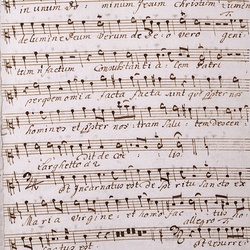 in unum Do minum Jesum Christum
de lumine Deum Verum de De o vero geni
tum n factum Consubstanti a lem Patri
per quem omni a facta facta sunt qui propter nos
homines et propter nos tram salu tem Descen
dit de Coe lis.
Larghetto
Et Incarnatus est de Spi ritu Sancto ex
Maria Virgine, et homo fac tus
allegro
factus est et resurre